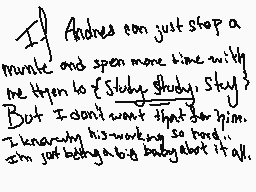 If Andres can just stop a
munte and spen more time with
me then to { Study, Study, Study }
But I don't want that for him.
I know why his working so hard!!
I'm just being a big baby about it all.